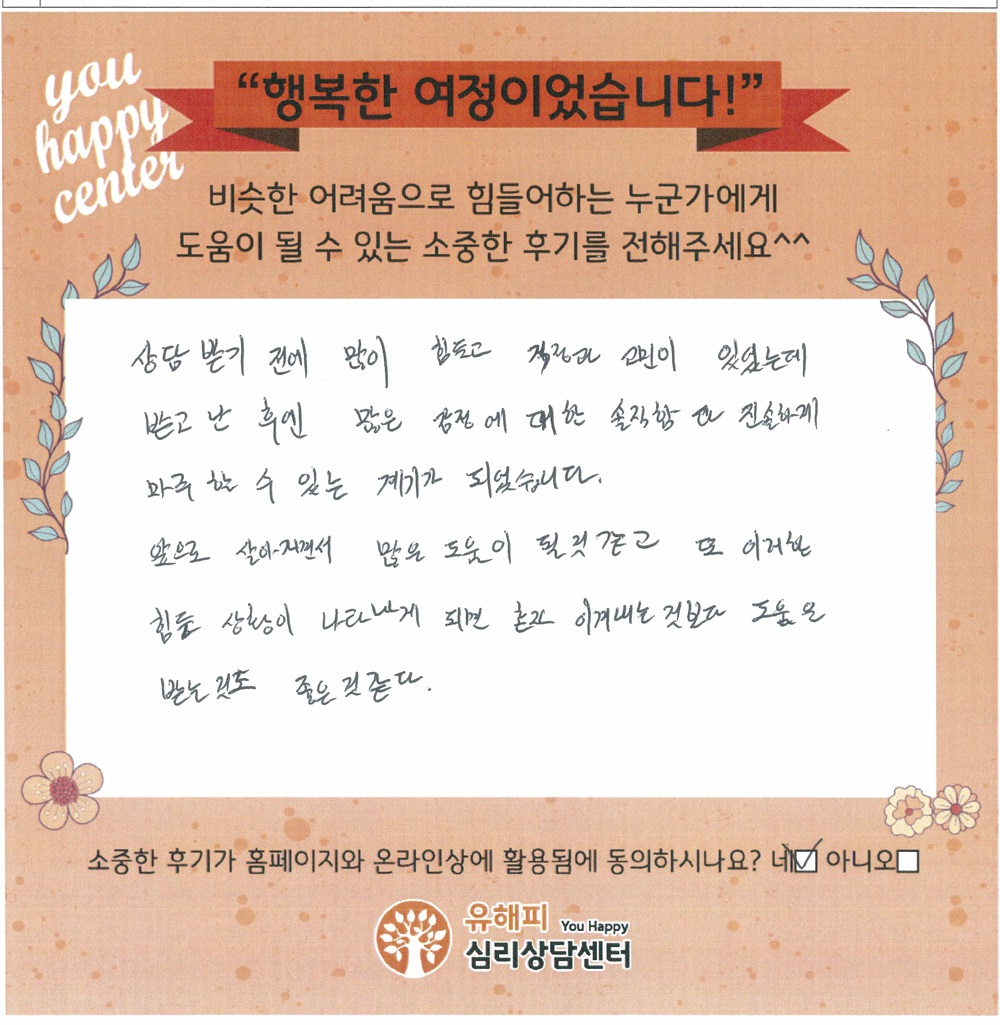 you
happy
center
“행복한 여정이었습니다!”
비슷한 어려움으로 힘들어하는 누군가에게
도움이 될 수 있는 소중한 후기를 전해주세요^^
상담 받기 전에 많이 힘들고 걱정과 고민이 있었는데
받고 난 후엔 많은 감정에 대한 솔직함과 진솔하게
마주 할 수 있는 계기가 되었습니다.
앞으로 살아가면서 많은 도움이 될것같고 또 이러한
힘든 상황이 나타나게 되면 혼자 이겨내는것보다 도움을
받는것도 좋은것같다.
소중한 후기가 홈페이지와 온라인상에 활용됨에 동의하시나요? 네 아니오
유해피 You Happy
심리상담센터